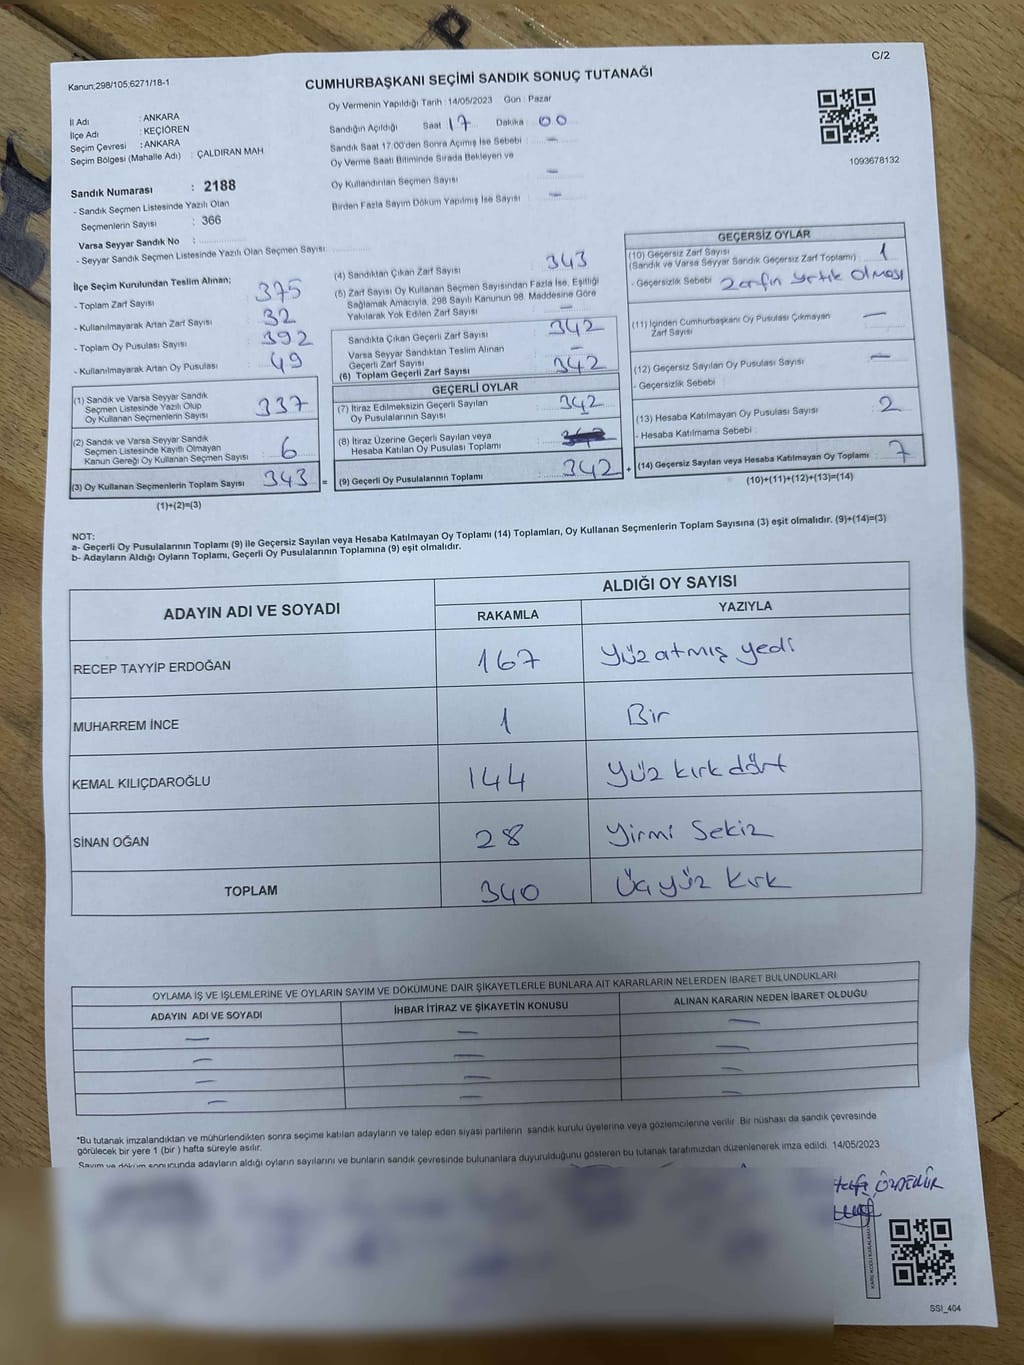 C/2
Kanun;298/105;6271/18-1
CUMHURBAŞKANI SEÇİMİ SANDIK SONUÇ TUTANAĞI
Oy Vermenin Yapıldığı Tarih : 14/05/2023 Gün : Pazar
İl Adı : ANKARA
İlçe Adı : KEÇİÖREN
Seçim Çevresi : ANKARA
Seçim Bölgesi (Mahalle Adı) : ÇALDIRAN MAH
Sandığın Açıldığı Saat 17 Dakika 00
Sandık Saat 17:00'den Sonra Açımış İse Sebebi : —
Oy Verme Saati Bitiminde Sırada Bekleyen ve
Oy Kullandırılan Seçmen Sayısı —
Birden Fazla Sayım Döküm Yapılmış İse Sayısı : —
1093678132
Sandık Numarası : 2188
- Sandık Seçmen Listesinde Yazılı Olan
Seçmenlerin Sayısı : 366
Varsa Seyyar Sandık No :
- Seyyar Sandık Seçmen Listesinde Yazılı Olan Seçmen Sayısı:
İlçe Seçim Kurulundan Teslim Alınan;
- Toplam Zarf Sayısı 375
- Kullanılmayarak Artan Zarf Sayısı 32
- Toplam Oy Pusulası Sayısı 392
- Kullanılmayarak Artan Oy Pusulası 49
(1) Sandık ve Varsa Seyyar Sandık
Seçmen Listesinde Yazılı Olup
Oy Kullanan Seçmenlerin Sayısı 337
(2) Sandık ve Varsa Seyyar Sandık
Seçmen Listesinde Kayıtlı Olmayan
Kanun Gereği Oy Kullanan Seçmen Sayısı 6
(3) Oy Kullanan Seçmenlerin Toplam Sayısı 343 =
(1)+(2)=(3)
(4) Sandıktan Çıkan Zarf Sayısı 343
(5) Zarf Sayısı Oy Kullanan Seçmen Sayısından Fazla İse, Eşitliği
Sağlamak Amacıyla, 298 Sayılı Kanunun 98. Maddesine Göre
Yakılarak Yok Edilen Zarf Sayısı —
Sandıkta Çıkan Geçerli Zarf Sayısı 342
Varsa Seyyar Sandıktan Teslim Alınan
Geçerli Zarf Sayısı —
(6) Toplam Geçerli Zarf Sayısı 342
GEÇERLİ OYLAR
(7) İtiraz Edilmeksizin Geçerli Sayılan
Oy Pusulalarının Sayısı 342
(8) İtiraz Üzerine Geçerli Sayılan veya
Hesaba Katılan Oy Pusulası Toplamı
(9) Geçerli Oy Pusulalarının Toplamı 342 +
GEÇERSİZ OYLAR
(10) Geçersiz Zarf Sayısı
(Sandık ve Varsa Seyyar Sandık Geçersiz Zarf Toplamı) 1
- Geçersizlik Sebebi Zarfın yırtık olması
(11) İçinden Cumhurbaşkanı Oy Pusulası Çıkmayan
Zarf Sayısı —
(12) Geçersiz Sayılan Oy Pusulası Sayısı —
- Geçersizlik Sebebi
(13) Hesaba Katılmayan Oy Pusulası Sayısı 2
- Hesaba Katılmama Sebebi
(14) Geçersiz Sayılan veya Hesaba Katılmayan Oy Toplamı 7
(10)+(11)+(12)+(13)=(14)
NOT:
a- Geçerli Oy Pusulalarının Toplamı (9) ile Geçersiz Sayılan veya Hesaba Katılmayan Oy Toplamı (14) Toplamları, Oy Kullanan Seçmenlerin Toplam Sayısına (3) eşit olmalıdır. (9)+(14)=(3)
b- Adayların Aldığı Oyların Toplamı, Geçerli Oy Pusulalarının Toplamına (9) eşit olmalıdır.
ADAYIN ADI VE SOYADI ALDIĞI OY SAYISI
RAKAMLA YAZIYLA
RECEP TAYYİP ERDOĞAN 167 Yüz atmış yedi
MUHARREM İNCE 1 Bir
KEMAL KILIÇDAROĞLU 144 Yüz kırk dört
SİNAN OĞAN 28 Yirmi Sekiz
TOPLAM 340 Üçyüz kırk
OYLAMA İŞ VE İŞLEMLERİNE VE OYLARIN SAYIM VE DÖKÜMÜNE DAİR ŞİKAYETLERLE BUNLARA AİT KARARLARIN NELERDEN İBARET BULUNDUKLARI
ADAYIN ADI VE SOYADI İHBAR İTİRAZ VE ŞİKAYETİN KONUSU ALINAN KARARIN NEDEN İBARET OLDUĞU
— — —
— — —
— — —
— — —
*Bu tutanak imzalandıktan ve mühürlendikten sonra seçime katılan adayların ve talep eden siyasi partilerin sandık kurulu üyelerine veya gözlemcilerine verilir. Bir nüshası da sandık çevresinde
görülecek bir yere 1 (bir) hafta süreyle asılır.
Sayım ve döküm sonucunda adayların aldığı oyların sayılarını ve bunların sandık çevresinde bulunanlara duyurulduğunu gösteren bu tutanak tarafımızdan düzenlenerek imza edildi. 14/05/2023
ÖZDEMİR
SSI_404